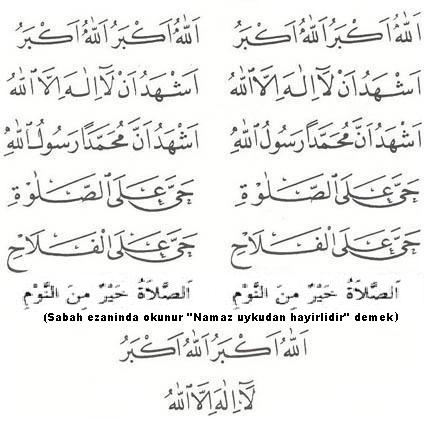 اَللّٰهُ اَكْبَرُ اَللّٰهُ اَكْبَرُ اَللّٰهُ اَكْبَرُ اَللّٰهُ اَكْبَرُ
اَشْهَدُ اَنْ لَٓا اِلٰهَ اِلَّا اللّٰهُ اَشْهَدُ اَنْ لَٓا اِلٰهَ اِلَّا اللّٰهُ
اَشْهَدُ اَنَّ مُحَمَّدًا رَسُولُ اللّٰهِ اَشْهَدُ اَنَّ مُحَمَّدًا رَسُولُ اللّٰهِ
حَىَّ عَلَى الصَّلٰوةِ حَىَّ عَلَى الصَّلٰوةِ
حَىَّ عَلَى الْفَلَاحِ حَىَّ عَلَى الْفَلَاحِ
اَلصَّلَاةُ خَيْرٌ مِنَ النَّوْمِ اَلصَّلَاةُ خَيْرٌ مِنَ النَّوْمِ
(Sabah ezaninda okunur "Namaz uykudan hayirlidir" demek)
اَللّٰهُ اَكْبَرُ اَللّٰهُ اَكْبَرُ
لَٓا اِلٰهَ اِلَّا اللّٰهُ